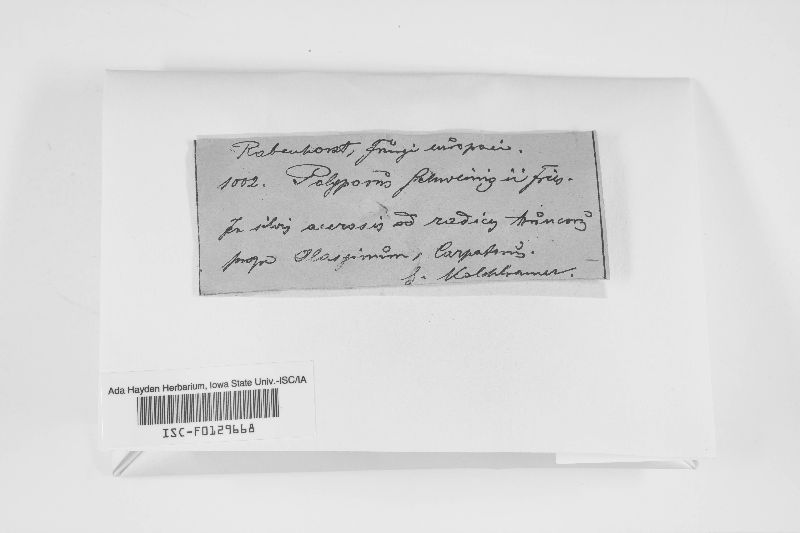 Rabenhorst, Fungi europaei.
1002. Polyporus Schweinitzii Fries.
In silvis acerosis ad radices truncorum
prope Olaszinum, Carpatorum.
C. Kalchbrenner.
Ada Hayden Herbarium, Iowa State Univ.-ISC/IA
ISC-F0129668